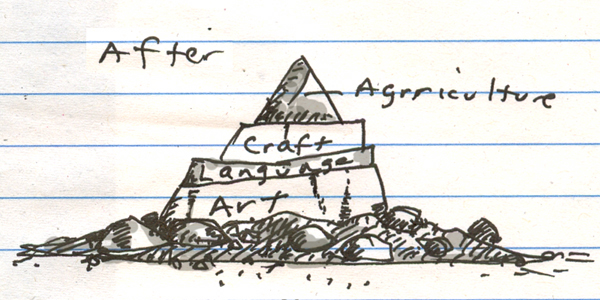 After
Agrriculture
Craft
Language
Art